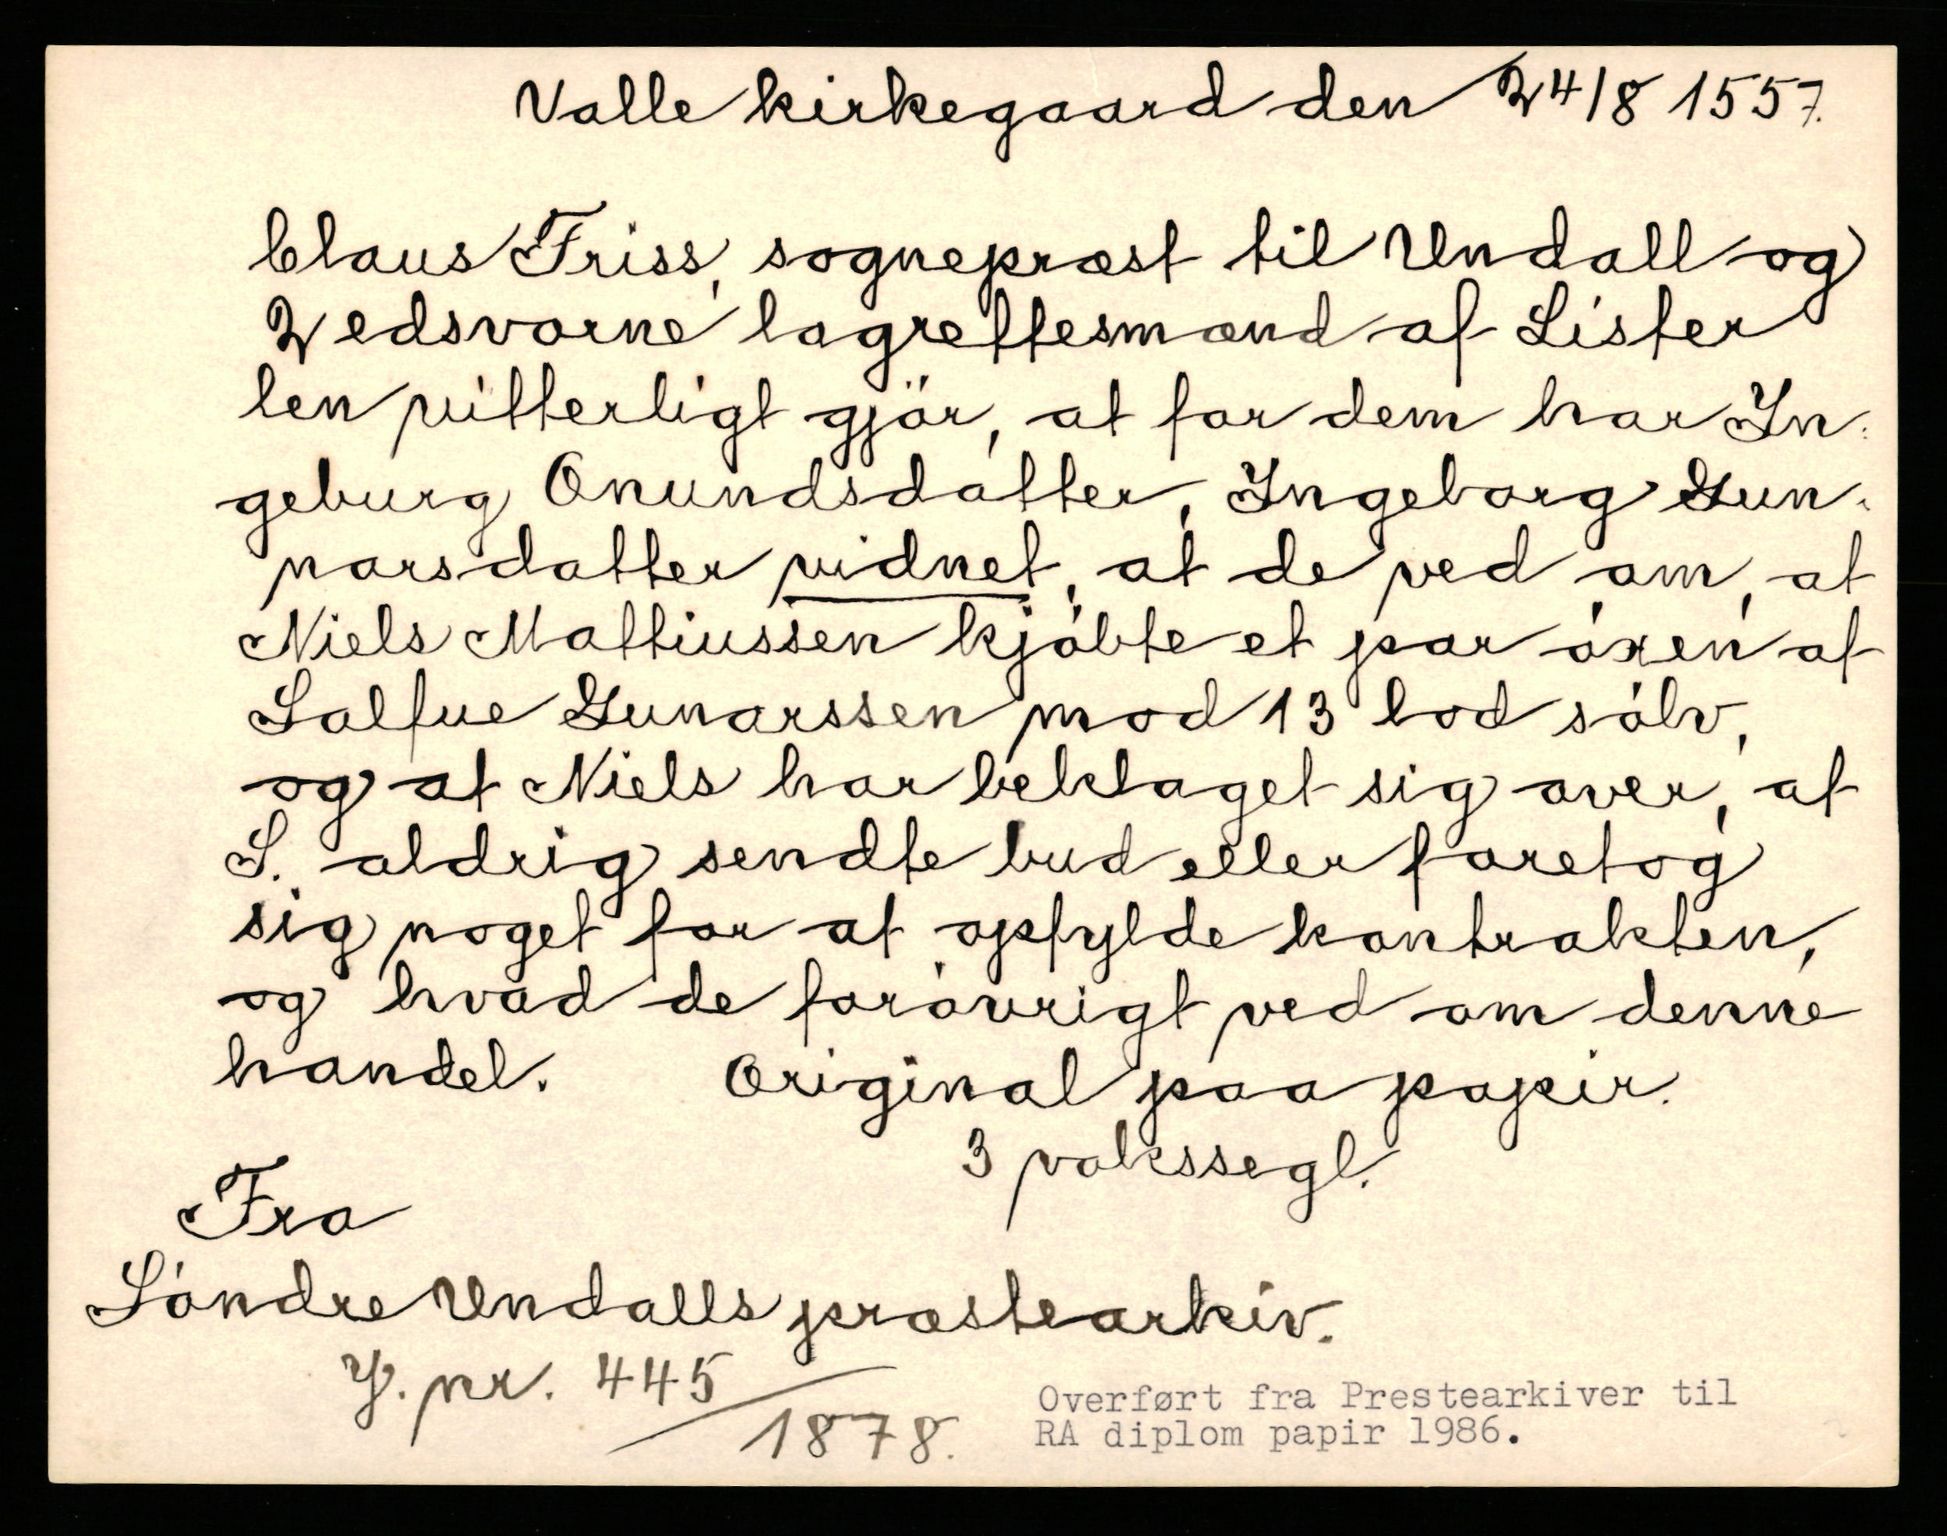 Valle kirkegaard den 24/8 1557.
Claus Friss, sognepræst til Undall og
2 edsvorne lagrettesmænd af Lister
len vitterligt gjör, at for dem har In-
geburg Onundsdatter, Ingeborg Gun-
narsdatter vidnet, at de ved om, at
Niels Mattiussen kjöbte et par öxen af
Salfue Gunarssen mod 13 lod sölv,
og at Niels har beklaget sig over, at
S. aldrig sendte bud eller foretog
sig noget for at opfylde kontrakten,
og hvad de forövrigt ved om denne
handel. Original paa papir.
3 vokssegl.
Fra
Söndre Undalls præstearkiv.
J. nr. 445/1878.
Overført fra Prestearkiver til
RA diplom papir 1986.